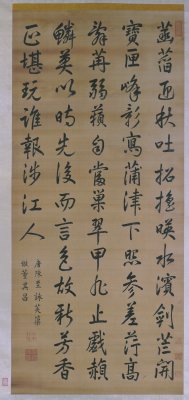 菡萏迎秋吐拓搖暎水濱劍芒開
寶匣峰影寫蒲津下照參差荇高
辭苒弱蘋自當巢翠甲非止戲赬
鱗莫以時先後而言色故新芳香
正堪玩誰報涉江人
唐陳至詠芙蕖
董其昌